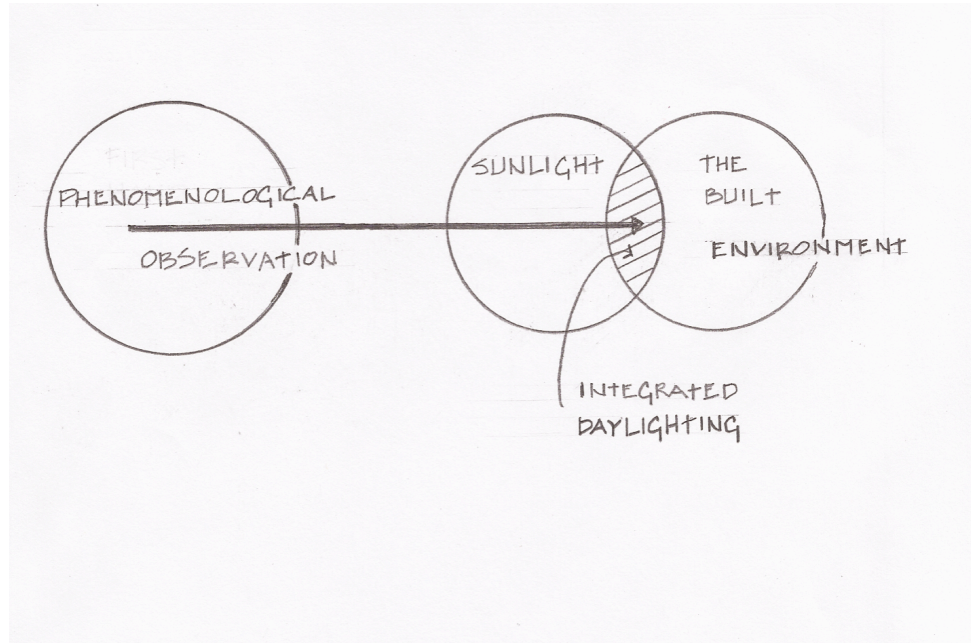 PHENOMENOLOGICAL
OBSERVATION
SUNLIGHT
THE
BUILT
ENVIRONMENT
INTEGRATED
DAYLIGHTING